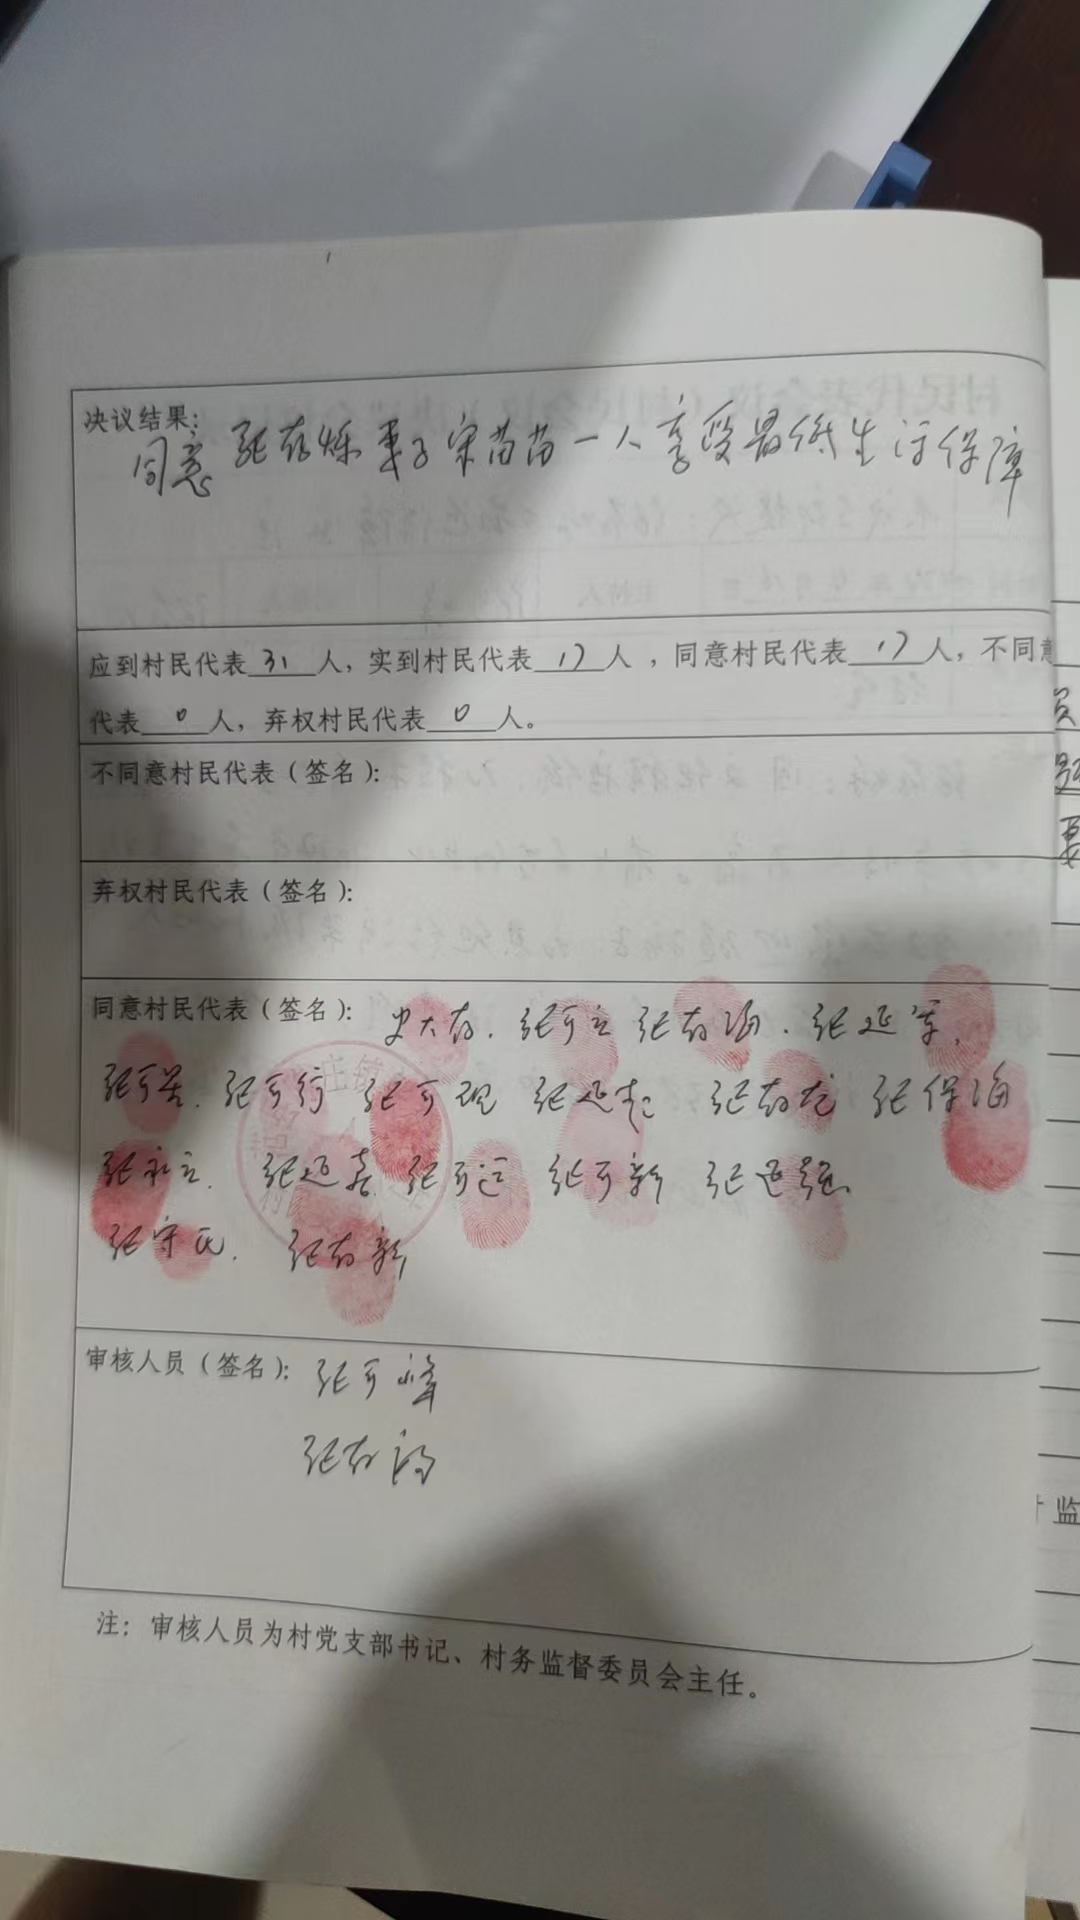 决议结果：
同意张存烁妻子宋苗苗一人享受最低生活保障
应到村民代表 31 人，实到村民代表 17 人，同意村民代表 17 人，不同意
代表 0 人，弃权村民代表 0 人。
不同意村民代表（签名）：
弃权村民代表（签名）：
同意村民代表（签名）： 史大存. 张可立 张存海. 张延军.
张可营. 张可行 张可现 张延彪 张存龙 张保海
张永立. 张延喜 张可运 张可新 张延强
张守氏. 张存新
审核人员（签名）： 张可峰
张存
注：审核人员为村党支部书记、村务监督委员会主任。
员
题
监